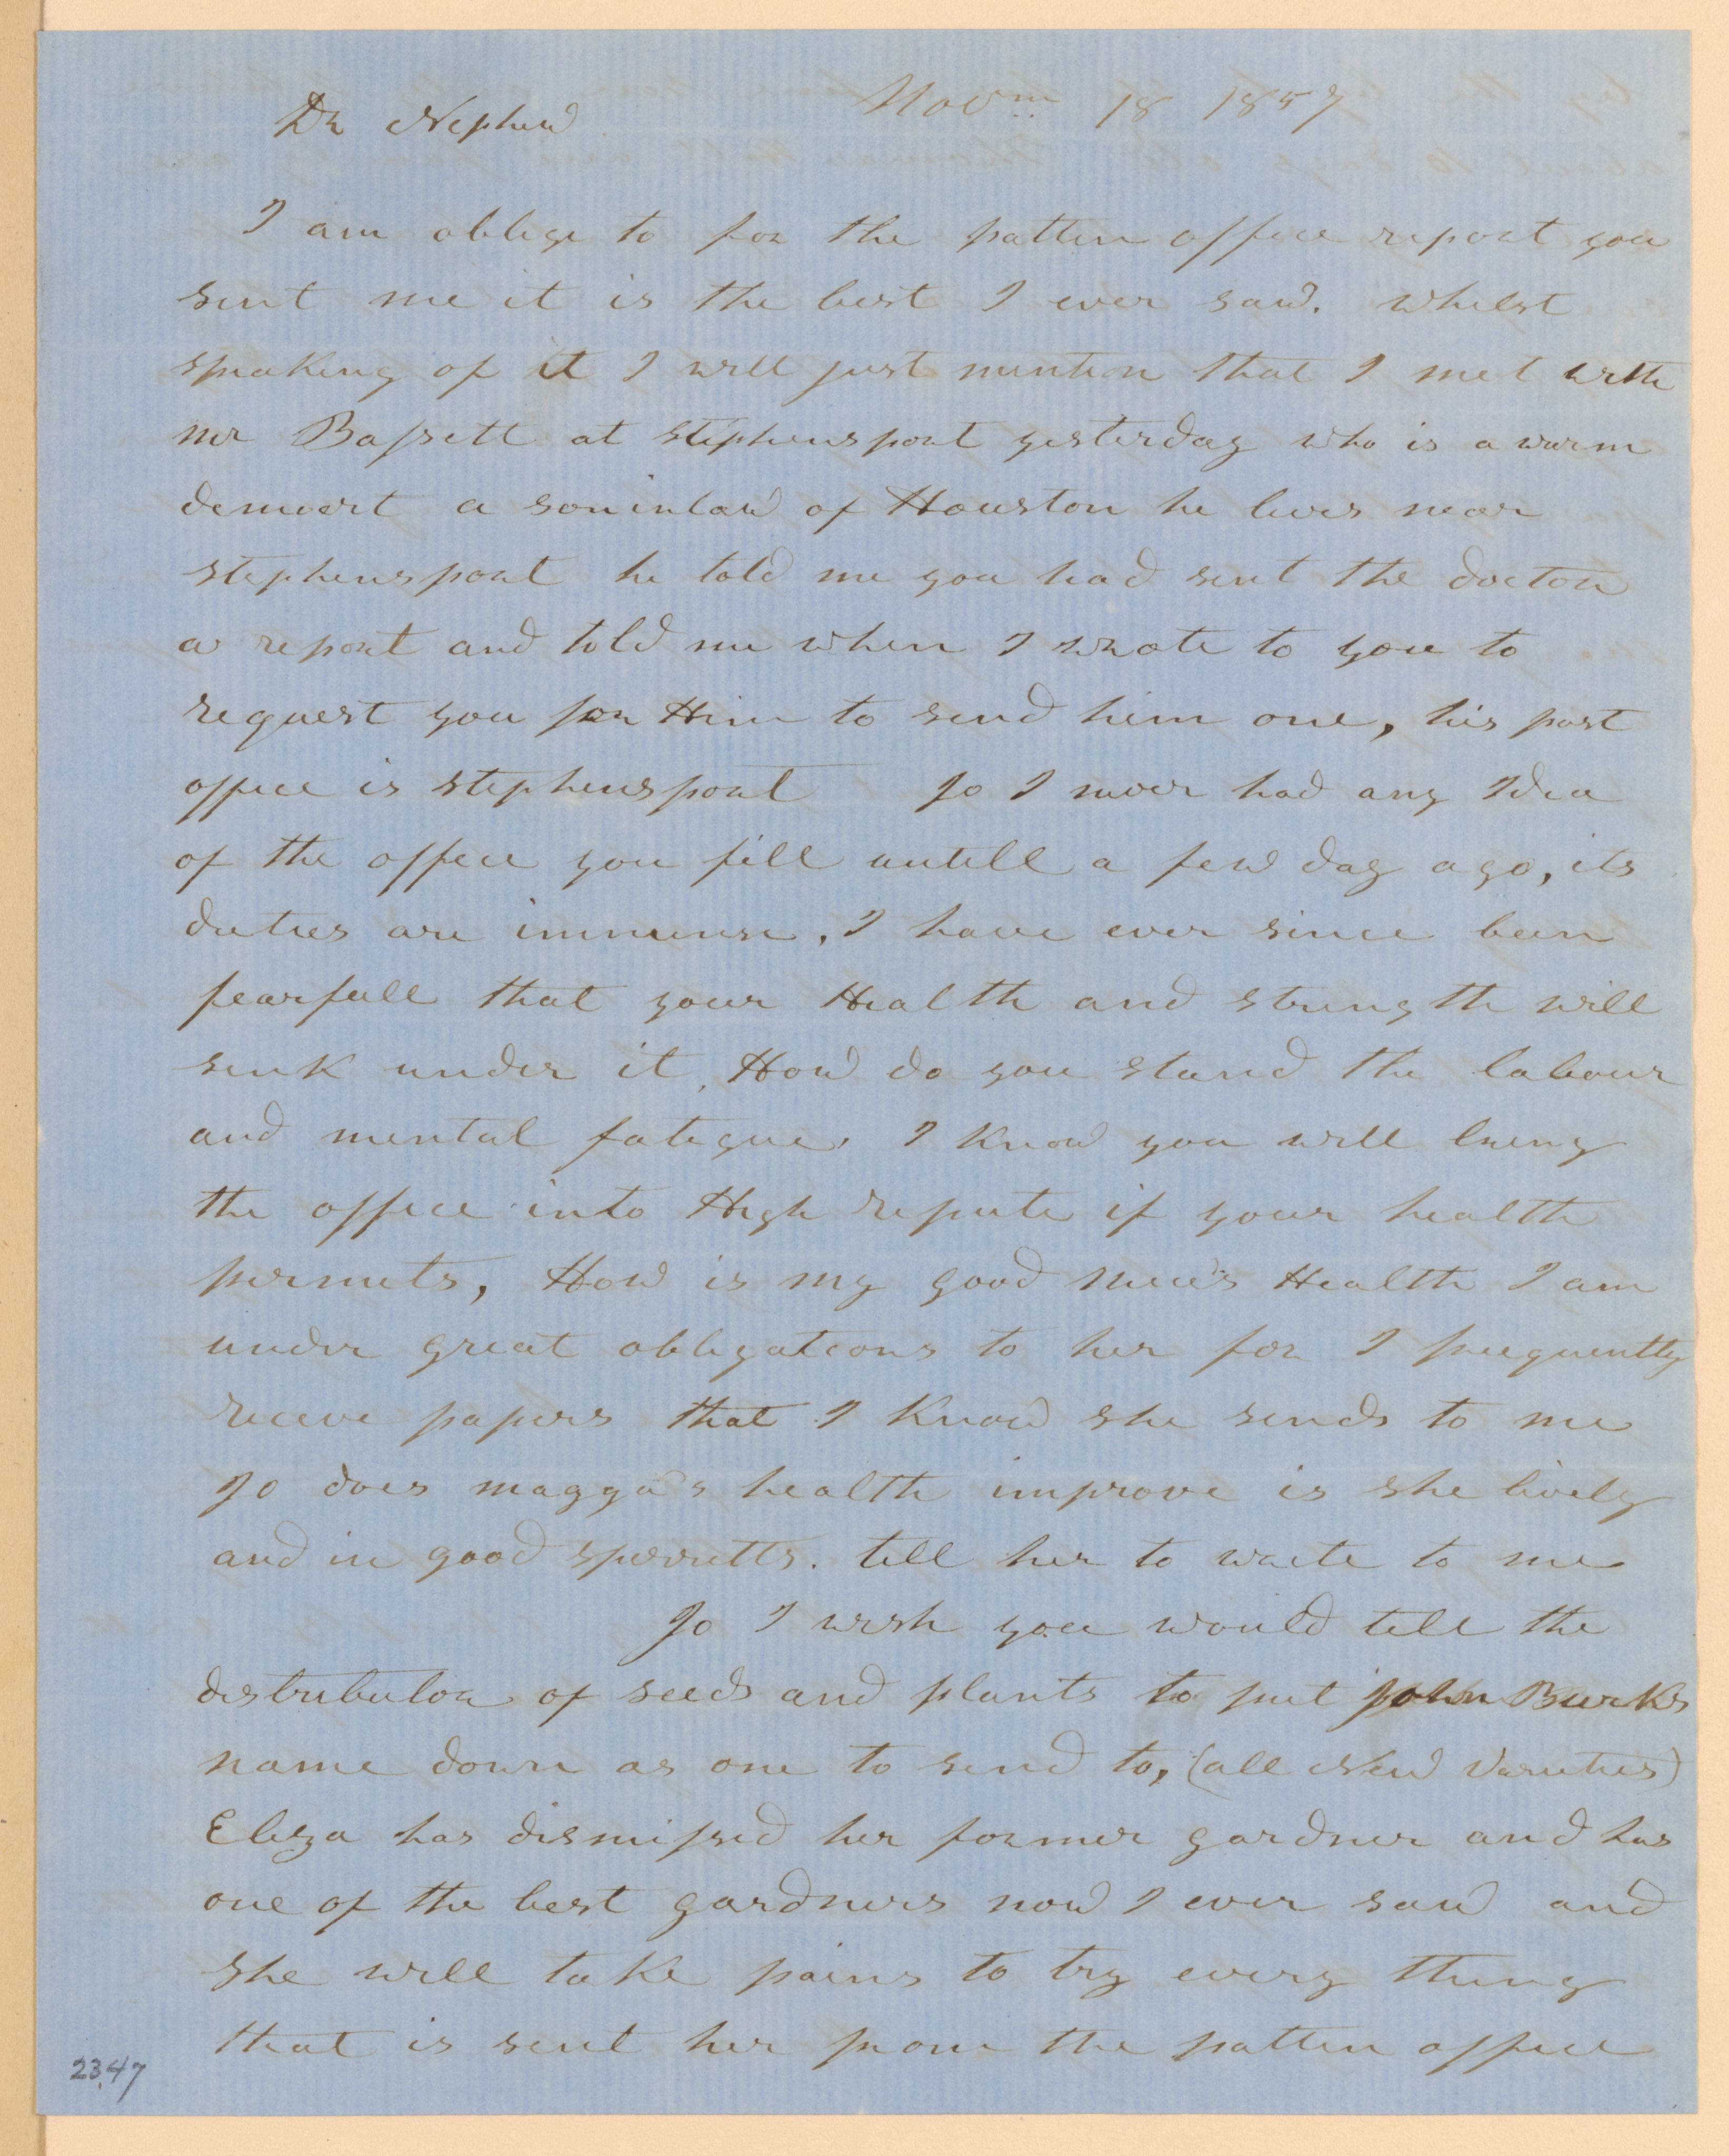 Novm 18 1857
Dr Nephew
I am oblige to for the patten office report you
sent me it is the best I ever saw. whilst
speaking of it I will just mention that I met with
mr Bassett at Stephensport yesterday who is a warm
democrt a soninlaw of Houston he lives near
Stephensport he told me you had sent the doctor
a report and told me when I wrote to you to
request you for Him to send him one, his post
office is Stephensport Jo I never had any Idea
of the office you fill untill a few day ago, its
duties are immense, I have ever since been
fearfull that your Health and strength will
sink under it, How do you stand the labour
and mental fatigue, I know you will bring
the office into High repute if your health
permits, How is my good niece's Health I am
under great obligations to her for I frequently
receve papers that I Know she sends to me
Jo does magga's health improve is she lively
and in good sperretts. tell her to write to me
Jo I wish you would tell the
distributor of seeds and plants to put john Burks
name down as one to send to, (all New Varieties)
Eliza has dismissed her former gardner and has
one of the best gardners now I ever saw and
she will take pains to try every thing
that is sent her from the patten office
23.47